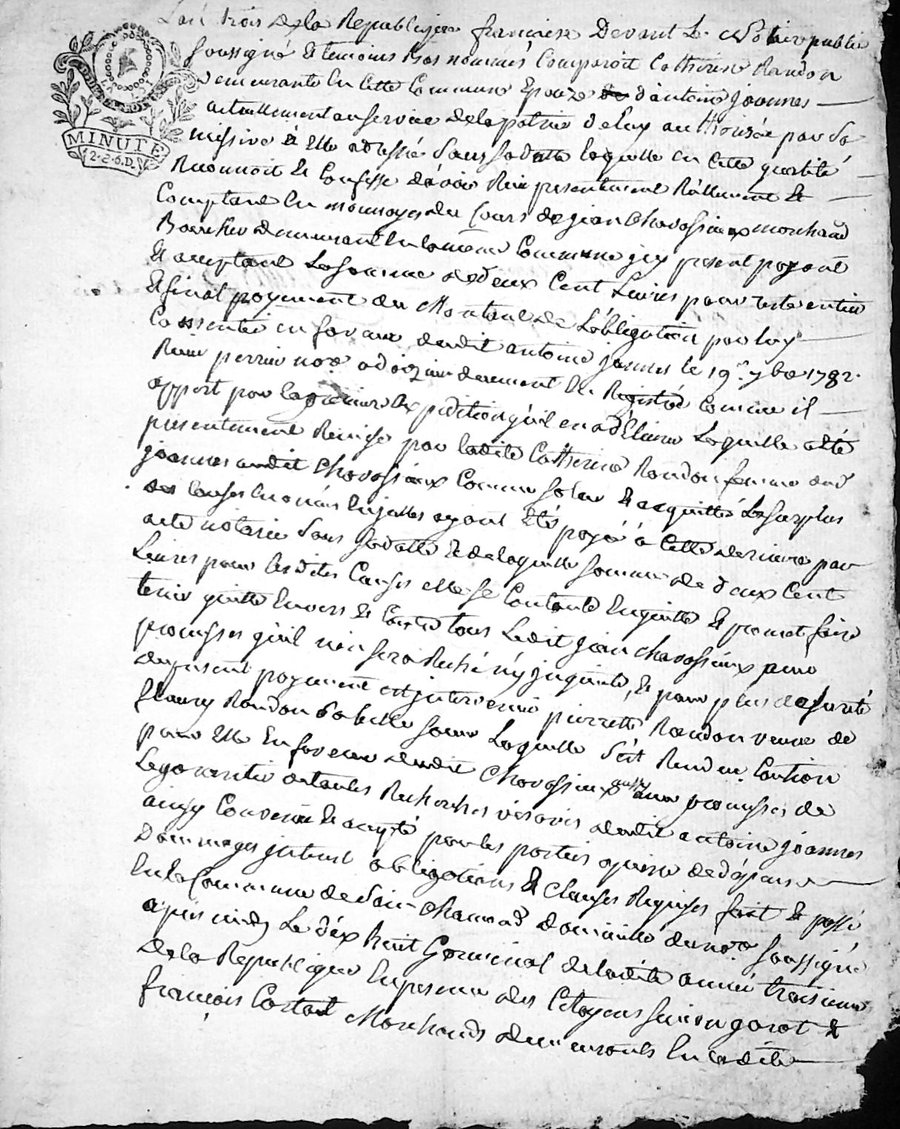 L'an trois de la Republique francoise Devant Le Notaire public
soussigné & temoins bas nommés Comparoit Catherine Randon
demeurante en cette Commune Epouze d'antoine joannes
actuellement au service de la patrie de luy authorisée par sa
missive à Elle adressée sans sa datte laquelle en cette qualité
Reconnoit & Confesse d'avoir Reçu presentement Réellement &
Comptant En monnoyes du Cours de jean Chavassieux marchand
Boucher demeurant En la même Commune icy present payant
& acceptant La somme de deux Cent Livres pour reste entier
& final payement du Montant de L'obligation par luy
Consentie en faveur dudit antoine joannes le 19 7bre 1782.
Reçue perrin nore adioz duement En Registrée Comme il
appert par la premiere Expedition qu'il en a d'Elivré Laquelle a été
presentement Remise par ladite Catherine Randon femme dud
joannes audit Chavassieux Comme solue & acquittée Le surplus
des Causes Enoncés En jcelles ayant Eté payé à Cette derniere par
acte notarié sans sa datte & de laquelle somme de deux Cent
Livres pour les dites Causes elle se Contente En quitte & promet faire
tenir quitte Envers & Contre tous Ledit jean chavassieux avec
promesses qu'il n'en sera Rechè ny jnquieté, & pour plus de sureté
du present payement est jntervenue pierrette Randon veuve de
fleury Randon sa belle soeur Laquelle s'est Rendue Caution
pour Elle En faveur dudit Chavassieux aussy avec promesses de
Le garentir de toutes Recherches vis avis dudit antoine joannes
ainsy Convenu & accepté par les parties a peine de d'épans
Dommages jnterest obligations & clauses Requises fait & passé
En la Commune de Sain chamond domicille du nore soussigné
après midy Le dix huit Germinal de ladite année troisieme
de la Republique En presence des Citoyens simeon garot &
françois Costat Marchands demeurants En ladite
LA
MINUTE
2.S.6.D.